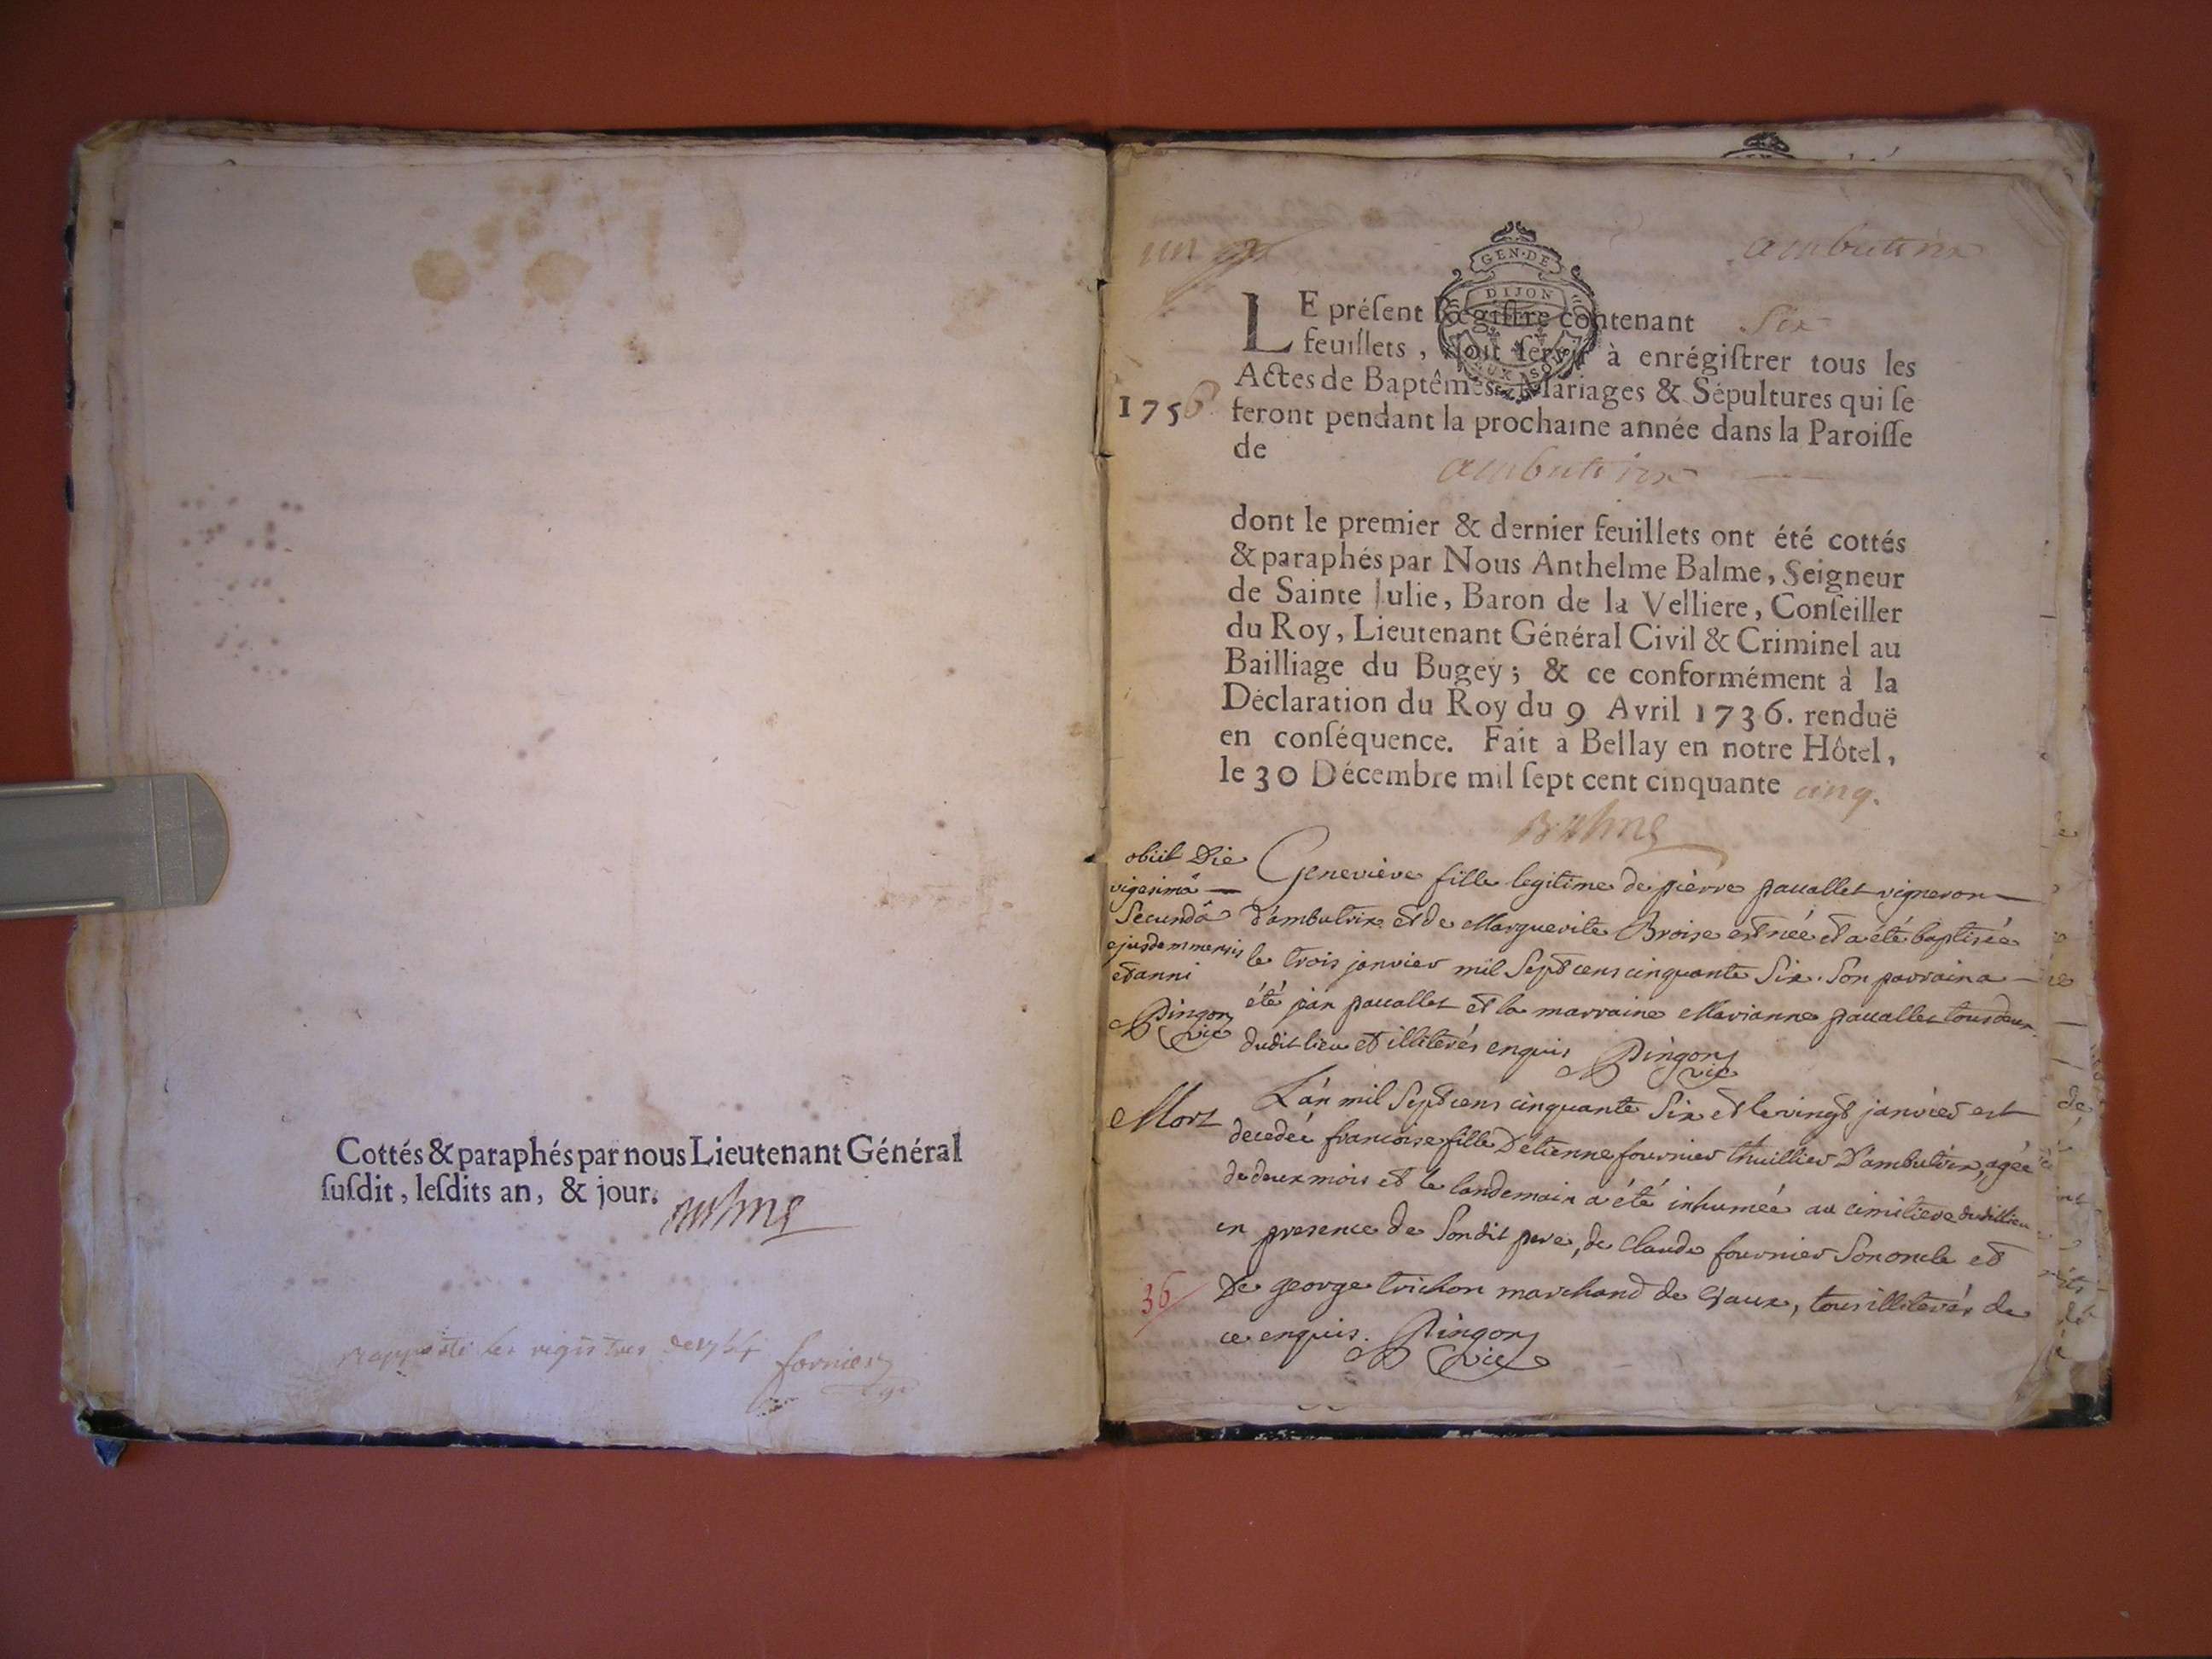 Cottés & paraphés par nous Lieutenant Général
ſuſdit, leſdits an, & jour.
Balme
les registres
un
ambutrix
GEN·DE
DIJON
LE préſent Régiſtre contenant Six
feuillets, doit ſervir à enrégiſtrer tous les
Actes de Baptêmes, Mariages & Sépultures qui ſe
1756 feront pendant la prochaine année dans la Paroiſſe
de
ambutrix
dont le premier & dernier feuillets ont été cottés
& paraphés par Nous Anthelme Balme, Seigneur
de Sainte Julie, Baron de la Velliere, Conſeiller
du Roy, Lieutenant Général Civil & Criminel au
Bailliage du Bugey ; & ce conformément à la
Déclaration du Roy du 9 Avril 1736. renduë
en conſéquence. Fait à Bellay en notre Hôtel,
le 30 Décembre mil ſept cent cinquante cinq.
Balme
obiit Die
vigesimâ
Secundâ
ejusdem mensis
et anni
Pingon
vic
Geneviève fille legitime de pièrre pauallet vigneron
d'ambutrix et de Marguerite Broise est née et a été baptisée
le trois janvier mil Sept cens cinquante Six. Son parrain a
été jean pauallet et la marraine Marianne pauallet tous deux
dudit lieu et illiterés enquis Pingon
vic
Mort
L'an mil Sept cens cinquante Six et le vingt janvier est
decedeé francoise fille D'étienne fournier thuillier D'ambutrix, agée
de deux mois et le landemain a été inhumée au cimitiere dudit lieu
en presence de Sondit pere, de Claude fournier Son oncle et
De george trichon marchand de Vaux, tous illiterés de
ce enquis. Pingon
vic
36